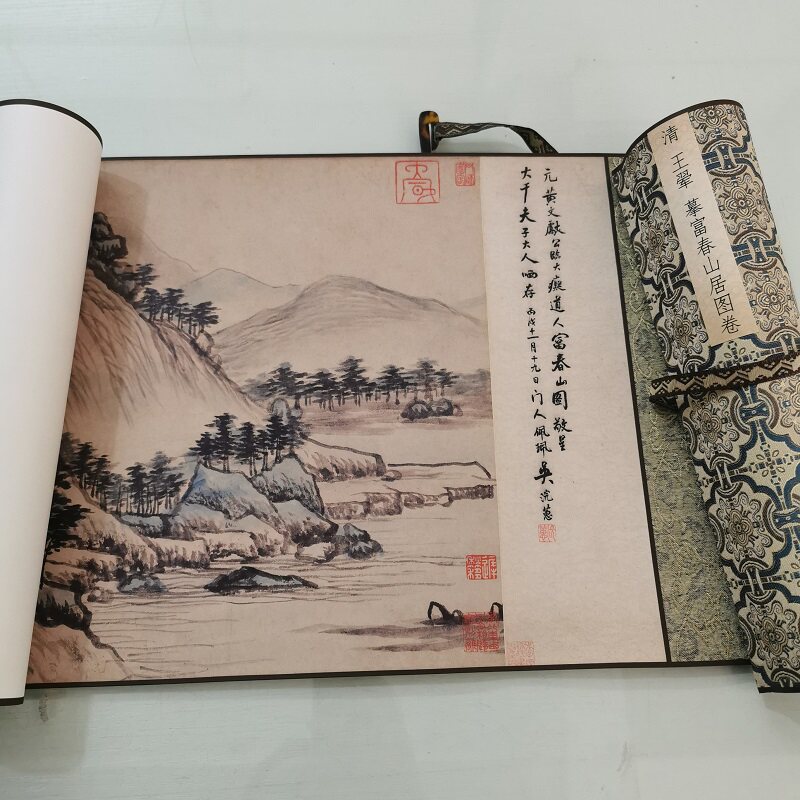 清 王翚 摹富春山居图卷
元黄文獻公臨大癡道人富春山圖敬呈
大千夫子大人哂存 丙戌十一月十九日门人佩珮 吳浣蕙